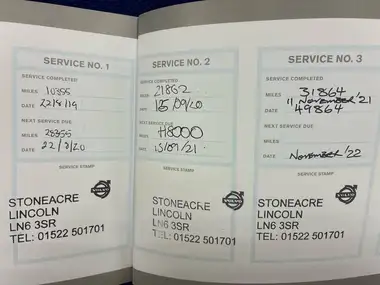 SERVICE NO. 1
SERVICE COMPLETED
MILES 10355
DATE 22/8/19
NEXT SERVICE DUE
MILES 28355
DATE 22/8/20
SERVICE STAMP
VOLVO
STONEACRE
LINCOLN
LN6 3SR
TEL: 01522 501701
SERVICE NO. 2
SERVICE COMPLETED
MILES 21852
DATE 15/09/20
NEXT SERVICE DUE
MILES
DATE 15/09/21
SERVICE STAMP
VOLVO
STONEACRE
LINCOLN
LN6 3SR
TEL: 01522 501701
SERVICE NO. 3
SERVICE COMPLETED
MILES 31864
11 November '21
DATE 49864
NEXT SERVICE DUE
MILES
DATE November '22
SERVICE STAMP
VOLVO
STONEACRE
LINCOLN
LN6 3SR
TEL: 01522 501701